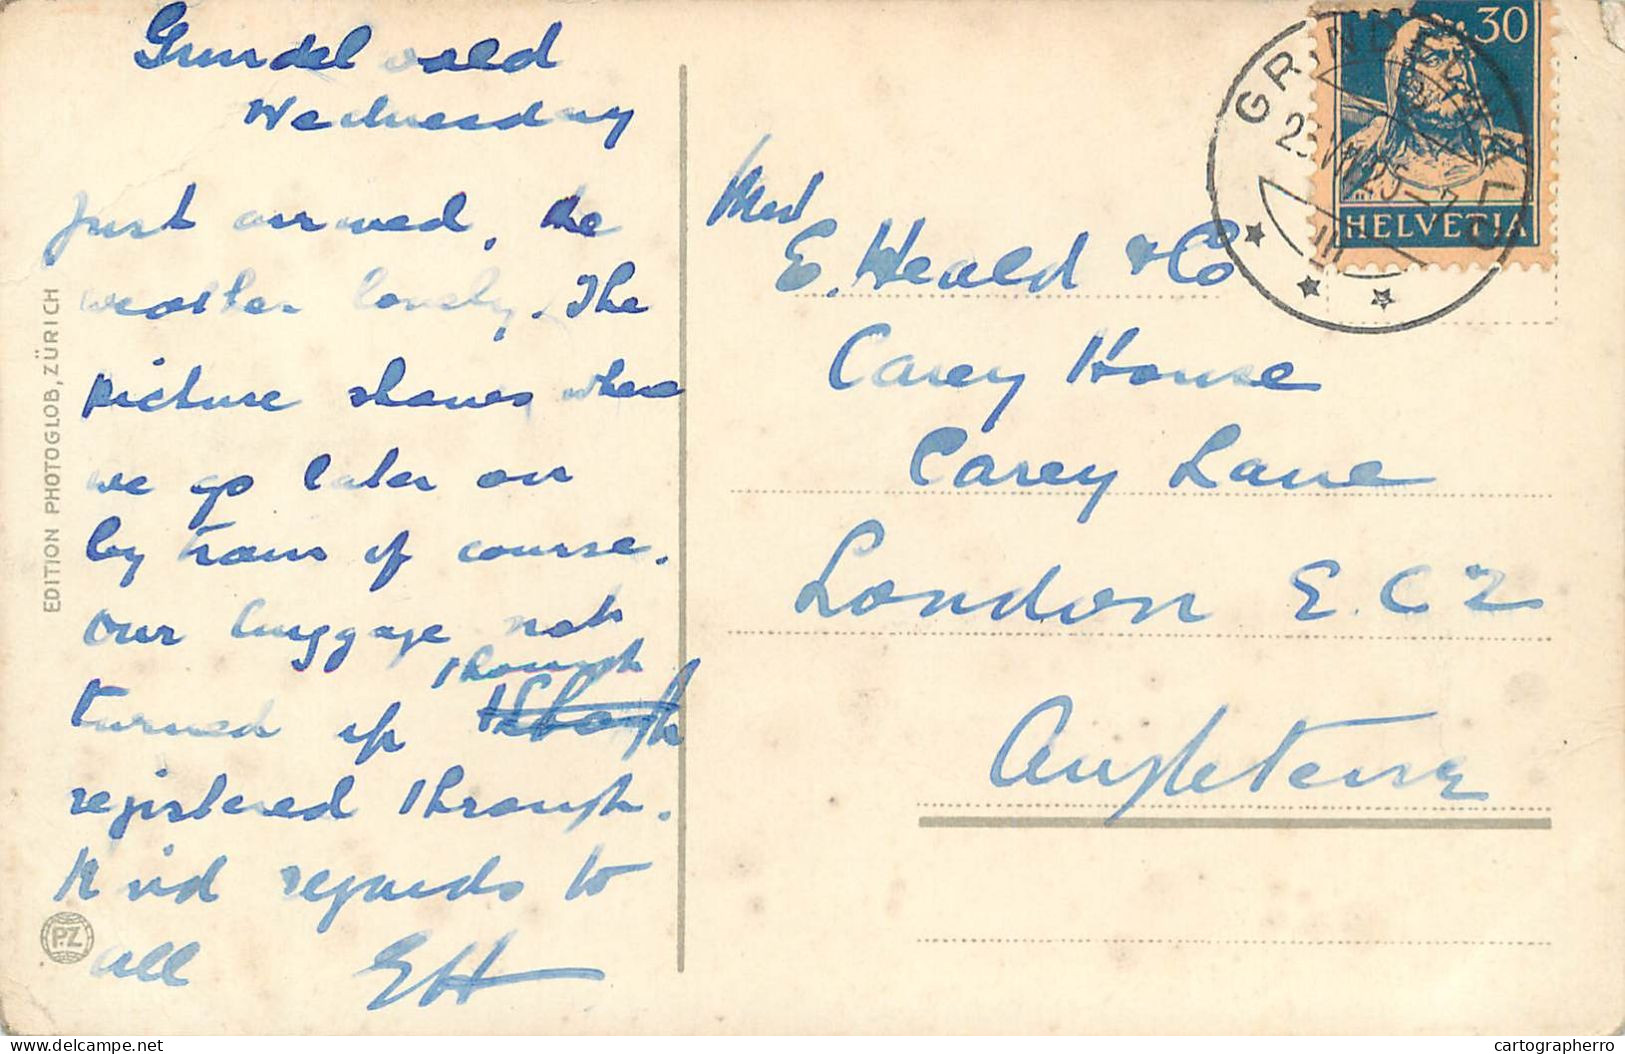 Grindelwald
Wednesday
Just arrived, the
weather lovely. The
picture shows where
we go later on
by train of course.
Our luggage not
turned up though
registered through.
Kind regards to
all EH
EDITION PHOTOGLOB, ZÜRICH
P.Z
E. Heald & Co
Carey House
Carey Lane
London E.C 2
Angleterre
30
HELVETIA
GRINDELWALD
delcampe.net
cartographerro